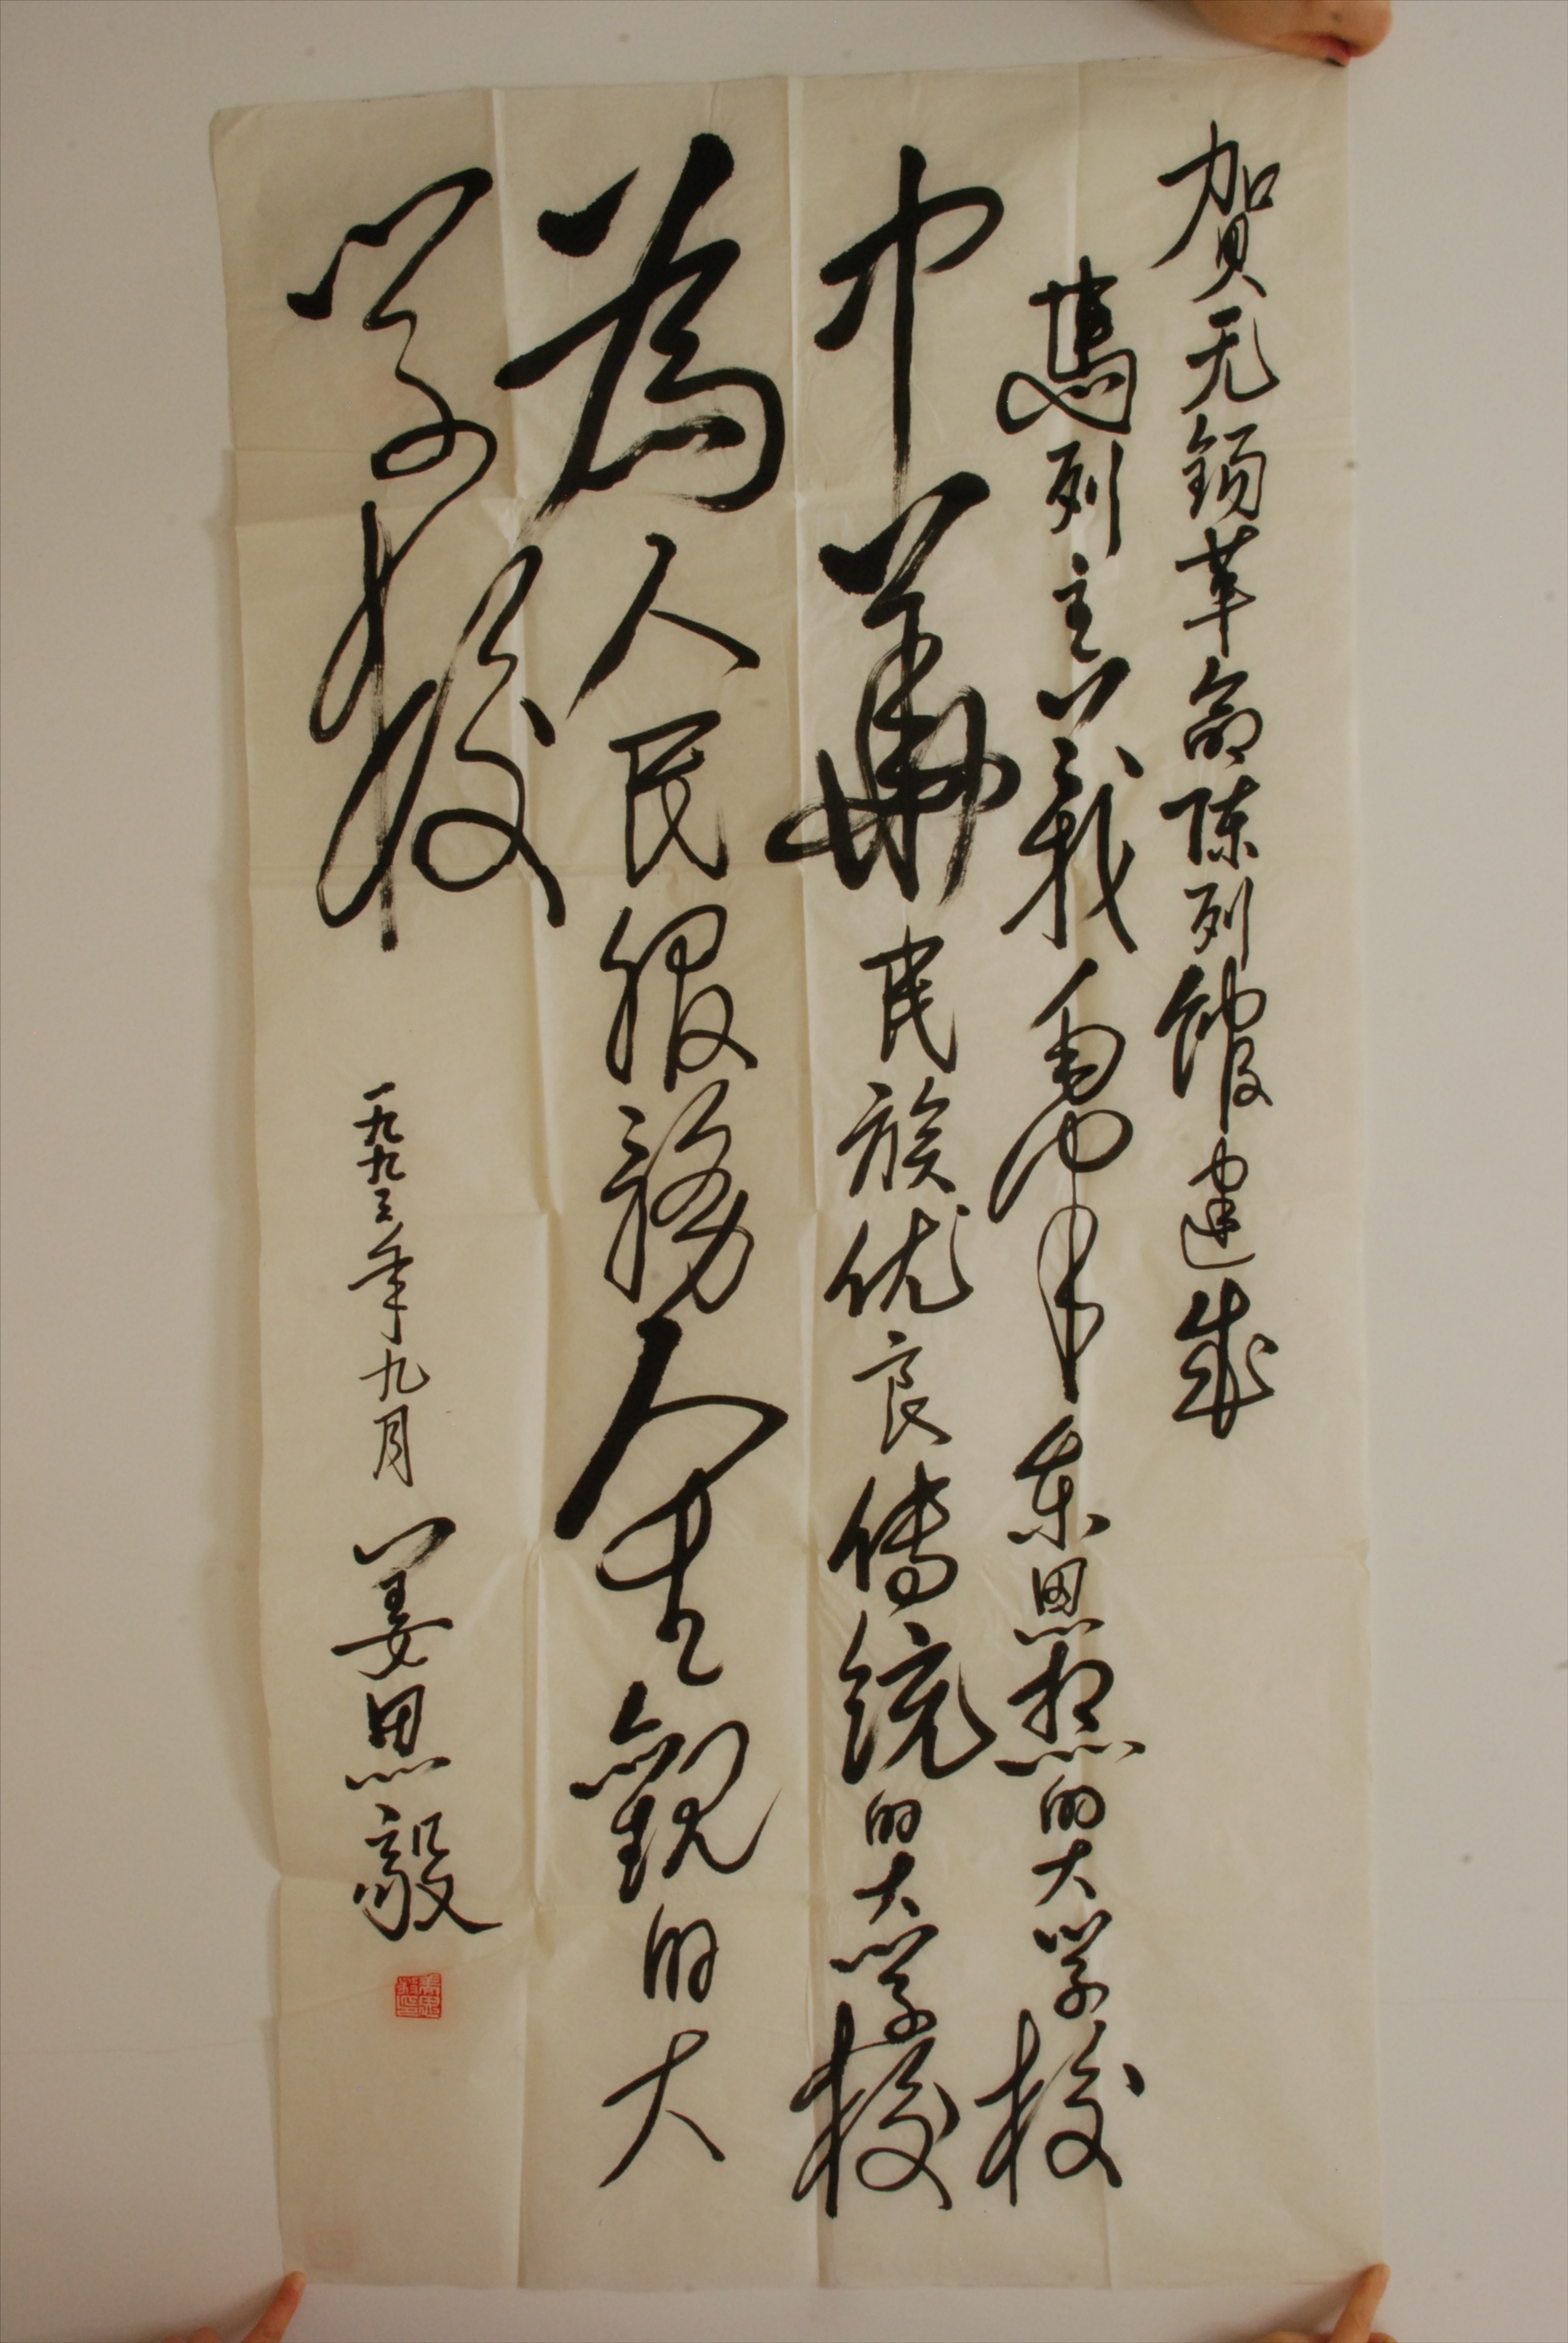 贺无锡革命陈列馆建成
馬列主義毛泽东思想的大学校
中華民族优良傳统的大学校
為人民服務人生觀的大
学校
一九九三年九月 姜思毅